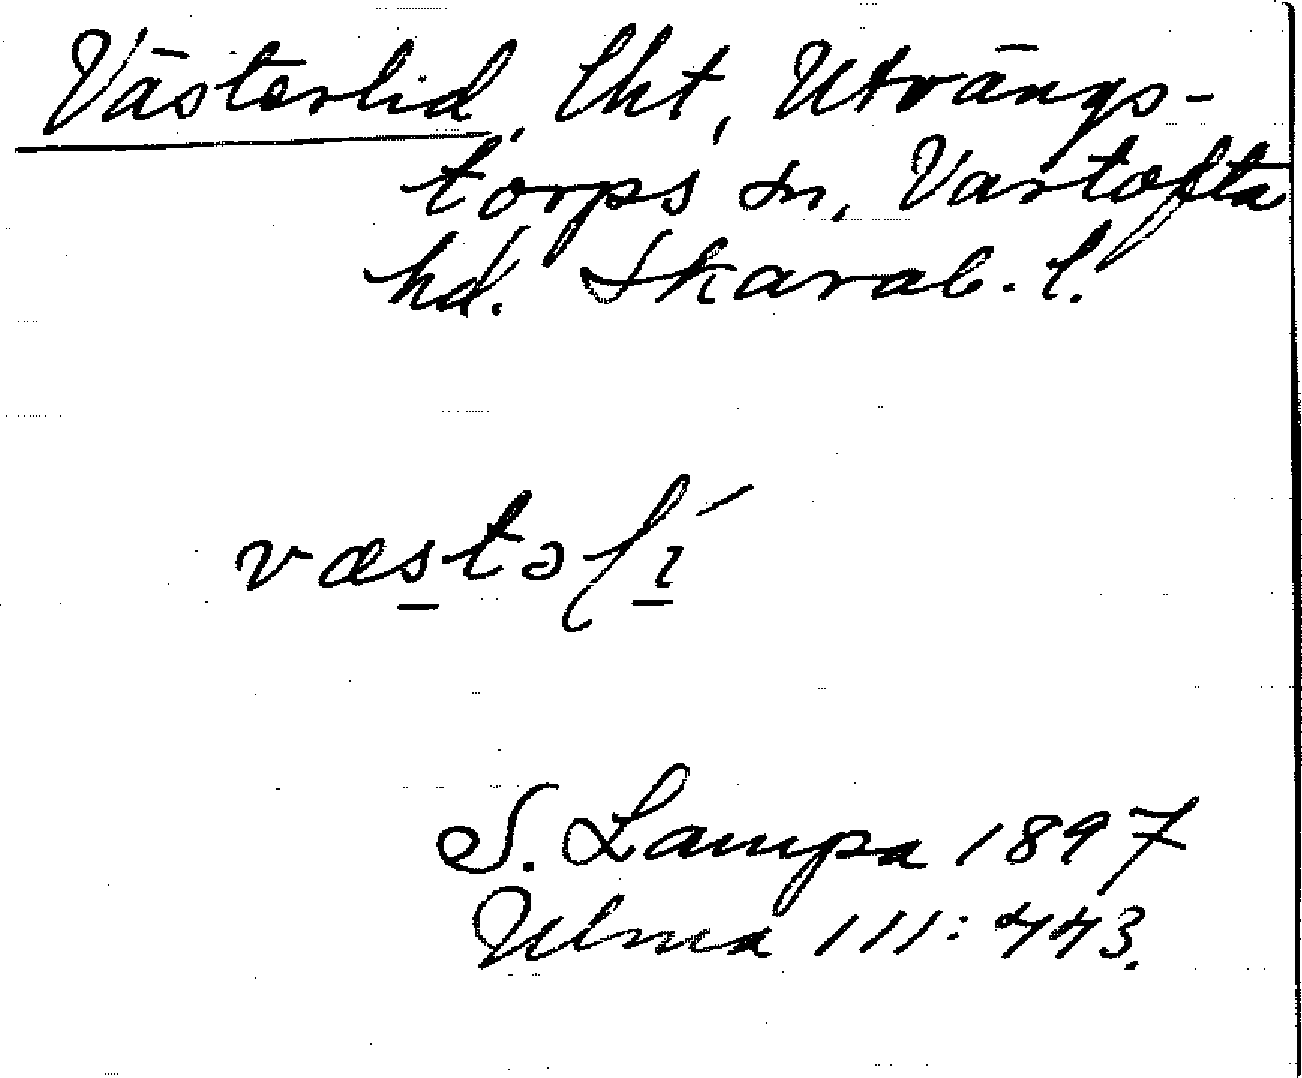 Västerlid, lht, Utvängs-
torps sn, Vartofta
hd. Skarab. l.
væstəlí
S. Lampa 1897
Ulma 111:443.